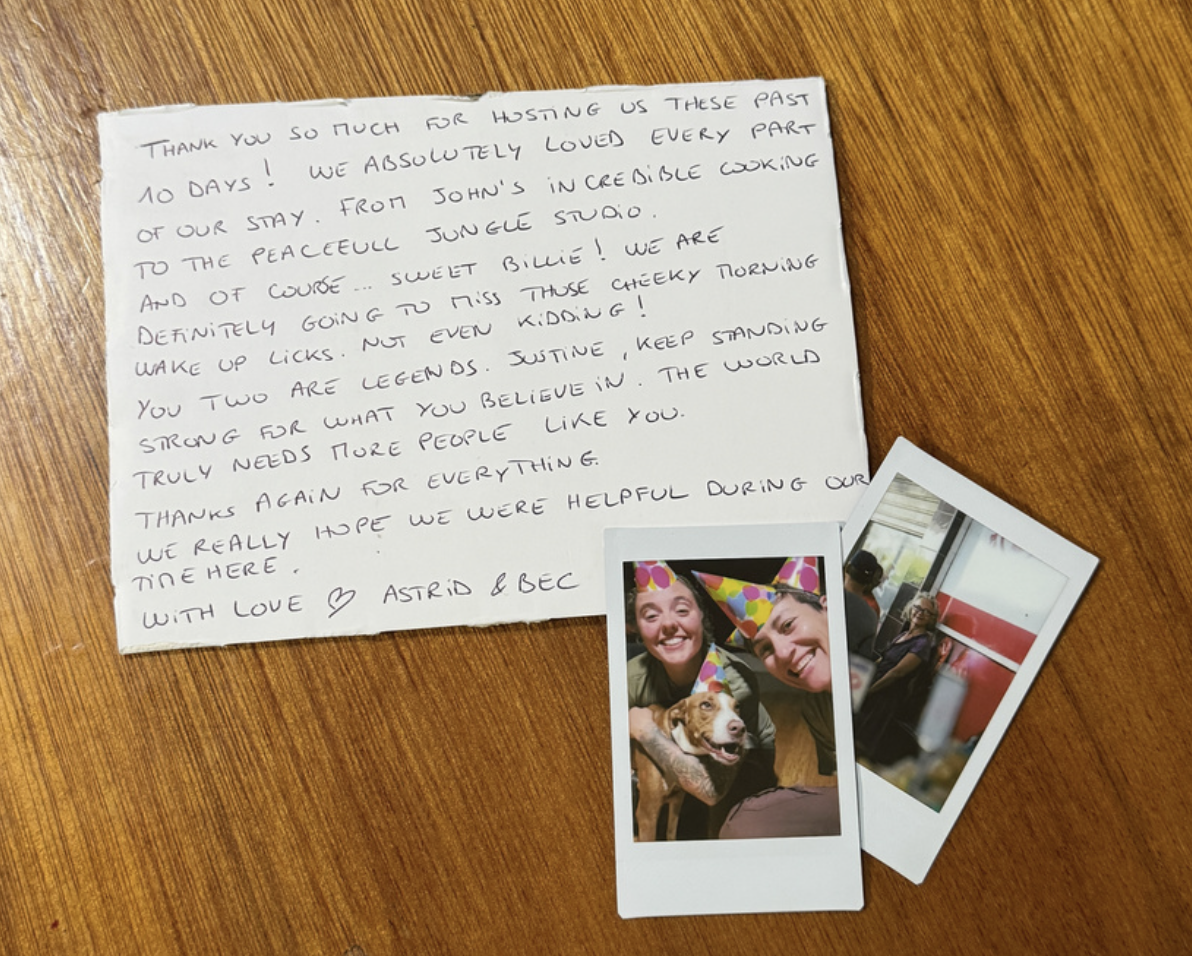 THANK YOU SO MUCH FOR HOSTING US THESE PAST
10 DAYS! WE ABSOLUTELY LOVED EVERY PART
OF OUR STAY. FROM JOHN'S INCREDIBLE COOKING
TO THE PEACEFULL JUNGLE STUDIO.
AND OF COURSE... SWEET BILLIE! WE ARE
DEFINITELY GOING TO MISS THOSE CHEEKY MORNING
WAKE UP LICKS. NOT EVEN KIDDING!
YOU TWO ARE LEGENDS. JUSTINE, KEEP STANDING
STRONG FOR WHAT YOU BELIEVE IN. THE WORLD
TRULY NEEDS MORE PEOPLE LIKE YOU.
THANKS AGAIN FOR EVERYTHING.
WE REALLY HOPE WE WERE HELPFUL DURING OUR
TIME HERE.
WITH LOVE ♡ ASTRID & BEC